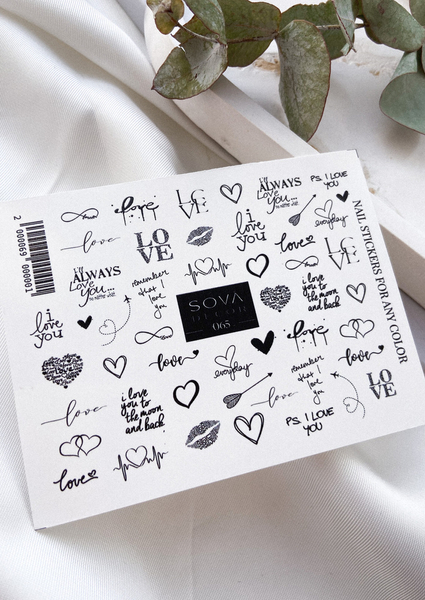 love
LO
VE
I'll ALWAYS
Love
You...
P.S. I LOVE
YOU
love
LO
VE
i
love
you
everyday
love
LO
VE
I'll ALWAYS
Love
You...
remember
that I
love
you
NAIL STICKERS FOR ANY COLOR
2 000069 000001
i
love
you
SOVA
DECOR
065
i love
you to
the moon
and back
love
love
everyday
remember
that I
love
you
love
love
i love
you to
the moon
and back
love
LO
VE
P.S. I LOVE
YOU
love